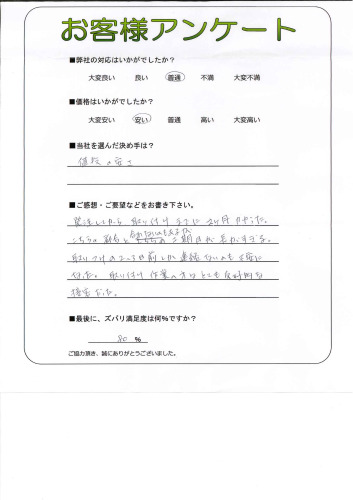 お客様アンケート
■弊社の対応はいかがでしたか?
大変良い 良い 普通 不満 大変不満
■価格はいかがでしたか?
大変安い 安い 普通 高い 大変高い
■当社を選んだ決め手は?
価格の安さ
■ご感想・ご要望などをお書き下さい。
発注してから取り付けまでに2ヶ月かかった。
こちらの都合と 合わないのも ありますが 期間が長かすぎる。
取りつけの2〜3日前しか連絡ないのも不安に
なった。取り付け作業の方はとても好印象な
接客だった。
■最後に、ズバリ満足度は何%ですか?
80 %
ご協力頂き、誠にありがとうございました。